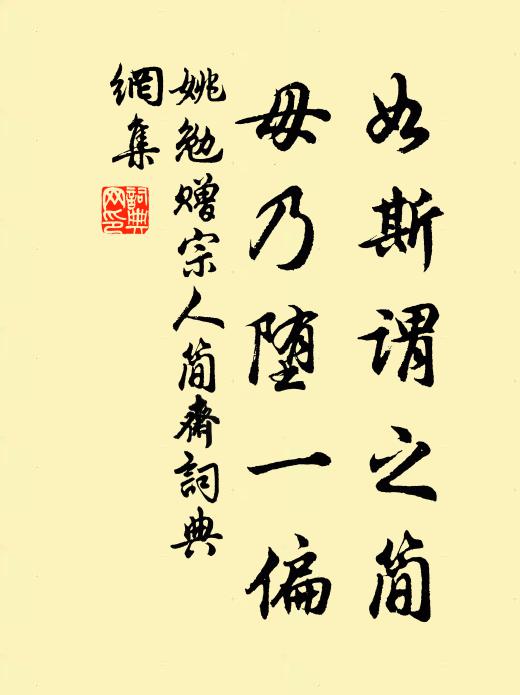 如斯谓之简
毋乃堕一偏
姚勉赠宗人简斋詞典
網集
詞典
网印